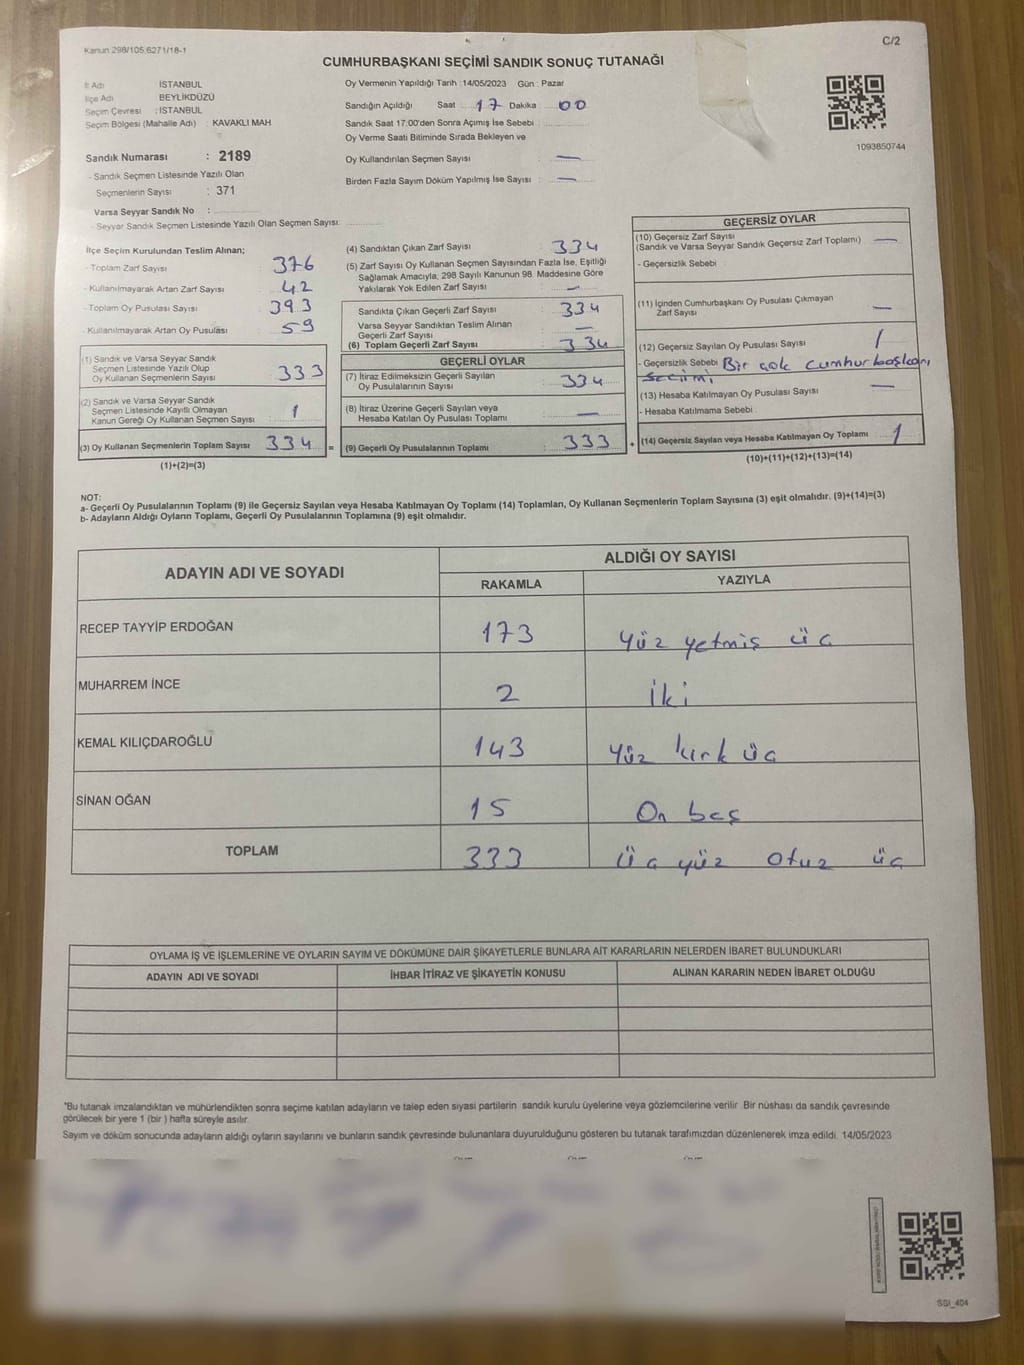 Kanun 298/105,6271/18-1
C/2
CUMHURBAŞKANI SEÇİMİ SANDIK SONUÇ TUTANAĞI
İl Adı İSTANBUL
İlçe Adı BEYLİKDÜZÜ
Seçim Çevresi : İSTANBUL
Seçim Bölgesi (Mahalle Adı) : KAVAKLI MAH
Sandık Numarası : 2189
- Sandık Seçmen Listesinde Yazılı Olan
Seçmenlerin Sayısı : 371
Varsa Seyyar Sandık No :
- Seyyar Sandık Seçmen Listesinde Yazılı Olan Seçmen Sayısı:
Oy Vermenin Yapıldığı Tarih :14/05/2023 Gün : Pazar
Sandığın Açıldığı Saat 17 Dakika 00
Sandık Saat 17:00'den Sonra Açımış İse Sebebi :
Oy Verme Saati Bitiminde Sırada Bekleyen ve
Oy Kullandırılan Seçmen Sayısı : —
Birden Fazla Sayım Döküm Yapılmış İse Sayısı : —
1093850744
İlçe Seçim Kurulundan Teslim Alınan;
- Toplam Zarf Sayısı : 376
- Kullanılmayarak Artan Zarf Sayısı : 42
- Toplam Oy Pusulası Sayısı : 393
- Kullanılmayarak Artan Oy Pusulası : 59
(1) Sandık ve Varsa Seyyar Sandık
Seçmen Listesinde Yazılı Olup
Oy Kullanan Seçmenlerin Sayısı : 333
(2) Sandık ve Varsa Seyyar Sandık
Seçmen Listesinde Kayıtlı Olmayan
Kanun Gereği Oy Kullanan Seçmen Sayısı : 1
(3) Oy Kullanan Seçmenlerin Toplam Sayısı 334 =
(1)+(2)=(3)
(4) Sandıktan Çıkan Zarf Sayısı : 334
(5) Zarf Sayısı Oy Kullanan Seçmen Sayısından Fazla İse, Eşitliği
Sağlamak Amacıyla, 298 Sayılı Kanunun 98. Maddesine Göre
Yakılarak Yok Edilen Zarf Sayısı : —
Sandıkta Çıkan Geçerli Zarf Sayısı : 334
Varsa Seyyar Sandıktan Teslim Alınan
Geçerli Zarf Sayısı : —
(6) Toplam Geçerli Zarf Sayısı : 334
GEÇERLİ OYLAR
(7) İtiraz Edilmeksizin Geçerli Sayılan
Oy Pusulalarının Sayısı : 334
(8) İtiraz Üzerine Geçerli Sayılan veya
Hesaba Katılan Oy Pusulası Toplamı : —
(9) Geçerli Oy Pusulalarının Toplamı : 333 +
GEÇERSİZ OYLAR
(10) Geçersiz Zarf Sayısı
(Sandık ve Varsa Seyyar Sandık Geçersiz Zarf Toplamı) —
- Geçersizlik Sebebi :
(11) İçinden Cumhurbaşkanı Oy Pusulası Çıkmayan
Zarf Sayısı : —
(12) Geçersiz Sayılan Oy Pusulası Sayısı : 1
- Geçersizlik Sebebi Bir çok cumhurbaşkanı
seçimi
(13) Hesaba Katılmayan Oy Pusulası Sayısı : —
- Hesaba Katılmama Sebebi
(14) Geçersiz Sayılan veya Hesaba Katılmayan Oy Toplamı : 1
(10)+(11)+(12)+(13)=(14)
NOT:
a- Geçerli Oy Pusulalarının Toplamı (9) ile Geçersiz Sayılan veya Hesaba Katılmayan Oy Toplamı (14) Toplamları, Oy Kullanan Seçmenlerin Toplam Sayısına (3) eşit olmalıdır. (9)+(14)=(3)
b- Adayların Aldığı Oyların Toplamı, Geçerli Oy Pusulalarının Toplamına (9) eşit olmalıdır.
ADAYIN ADI VE SOYADI
ALDIĞI OY SAYISI
RAKAMLA YAZIYLA
RECEP TAYYİP ERDOĞAN 173 Yüz yetmiş üç
MUHARREM İNCE 2 iki
KEMAL KILIÇDAROĞLU 143 yüz kırk üç
SİNAN OĞAN 15 On beş
TOPLAM 333 üç yüz otuz üç
OYLAMA İŞ VE İŞLEMLERİNE VE OYLARIN SAYIM VE DÖKÜMÜNE DAİR ŞİKAYETLERLE BUNLARA AİT KARARLARIN NELERDEN İBARET BULUNDUKLARI
ADAYIN ADI VE SOYADI İHBAR İTİRAZ VE ŞİKAYETİN KONUSU ALINAN KARARIN NEDEN İBARET OLDUĞU
*Bu tutanak imzalandıktan ve mühürlendikten sonra seçime katılan adayların ve talep eden siyasi partilerin sandık kurulu üyelerine veya gözlemcilerine verilir. Bir nüshası da sandık çevresinde
görülecek bir yere 1 (bir ) hafta süreyle asılır.
Sayım ve döküm sonucunda adayların aldığı oyların sayılarını ve bunların sandık çevresinde bulunanlara duyurulduğunu gösteren bu tutanak tarafımızdan düzenlenerek imza edildi. 14/05/2023
SSI_404